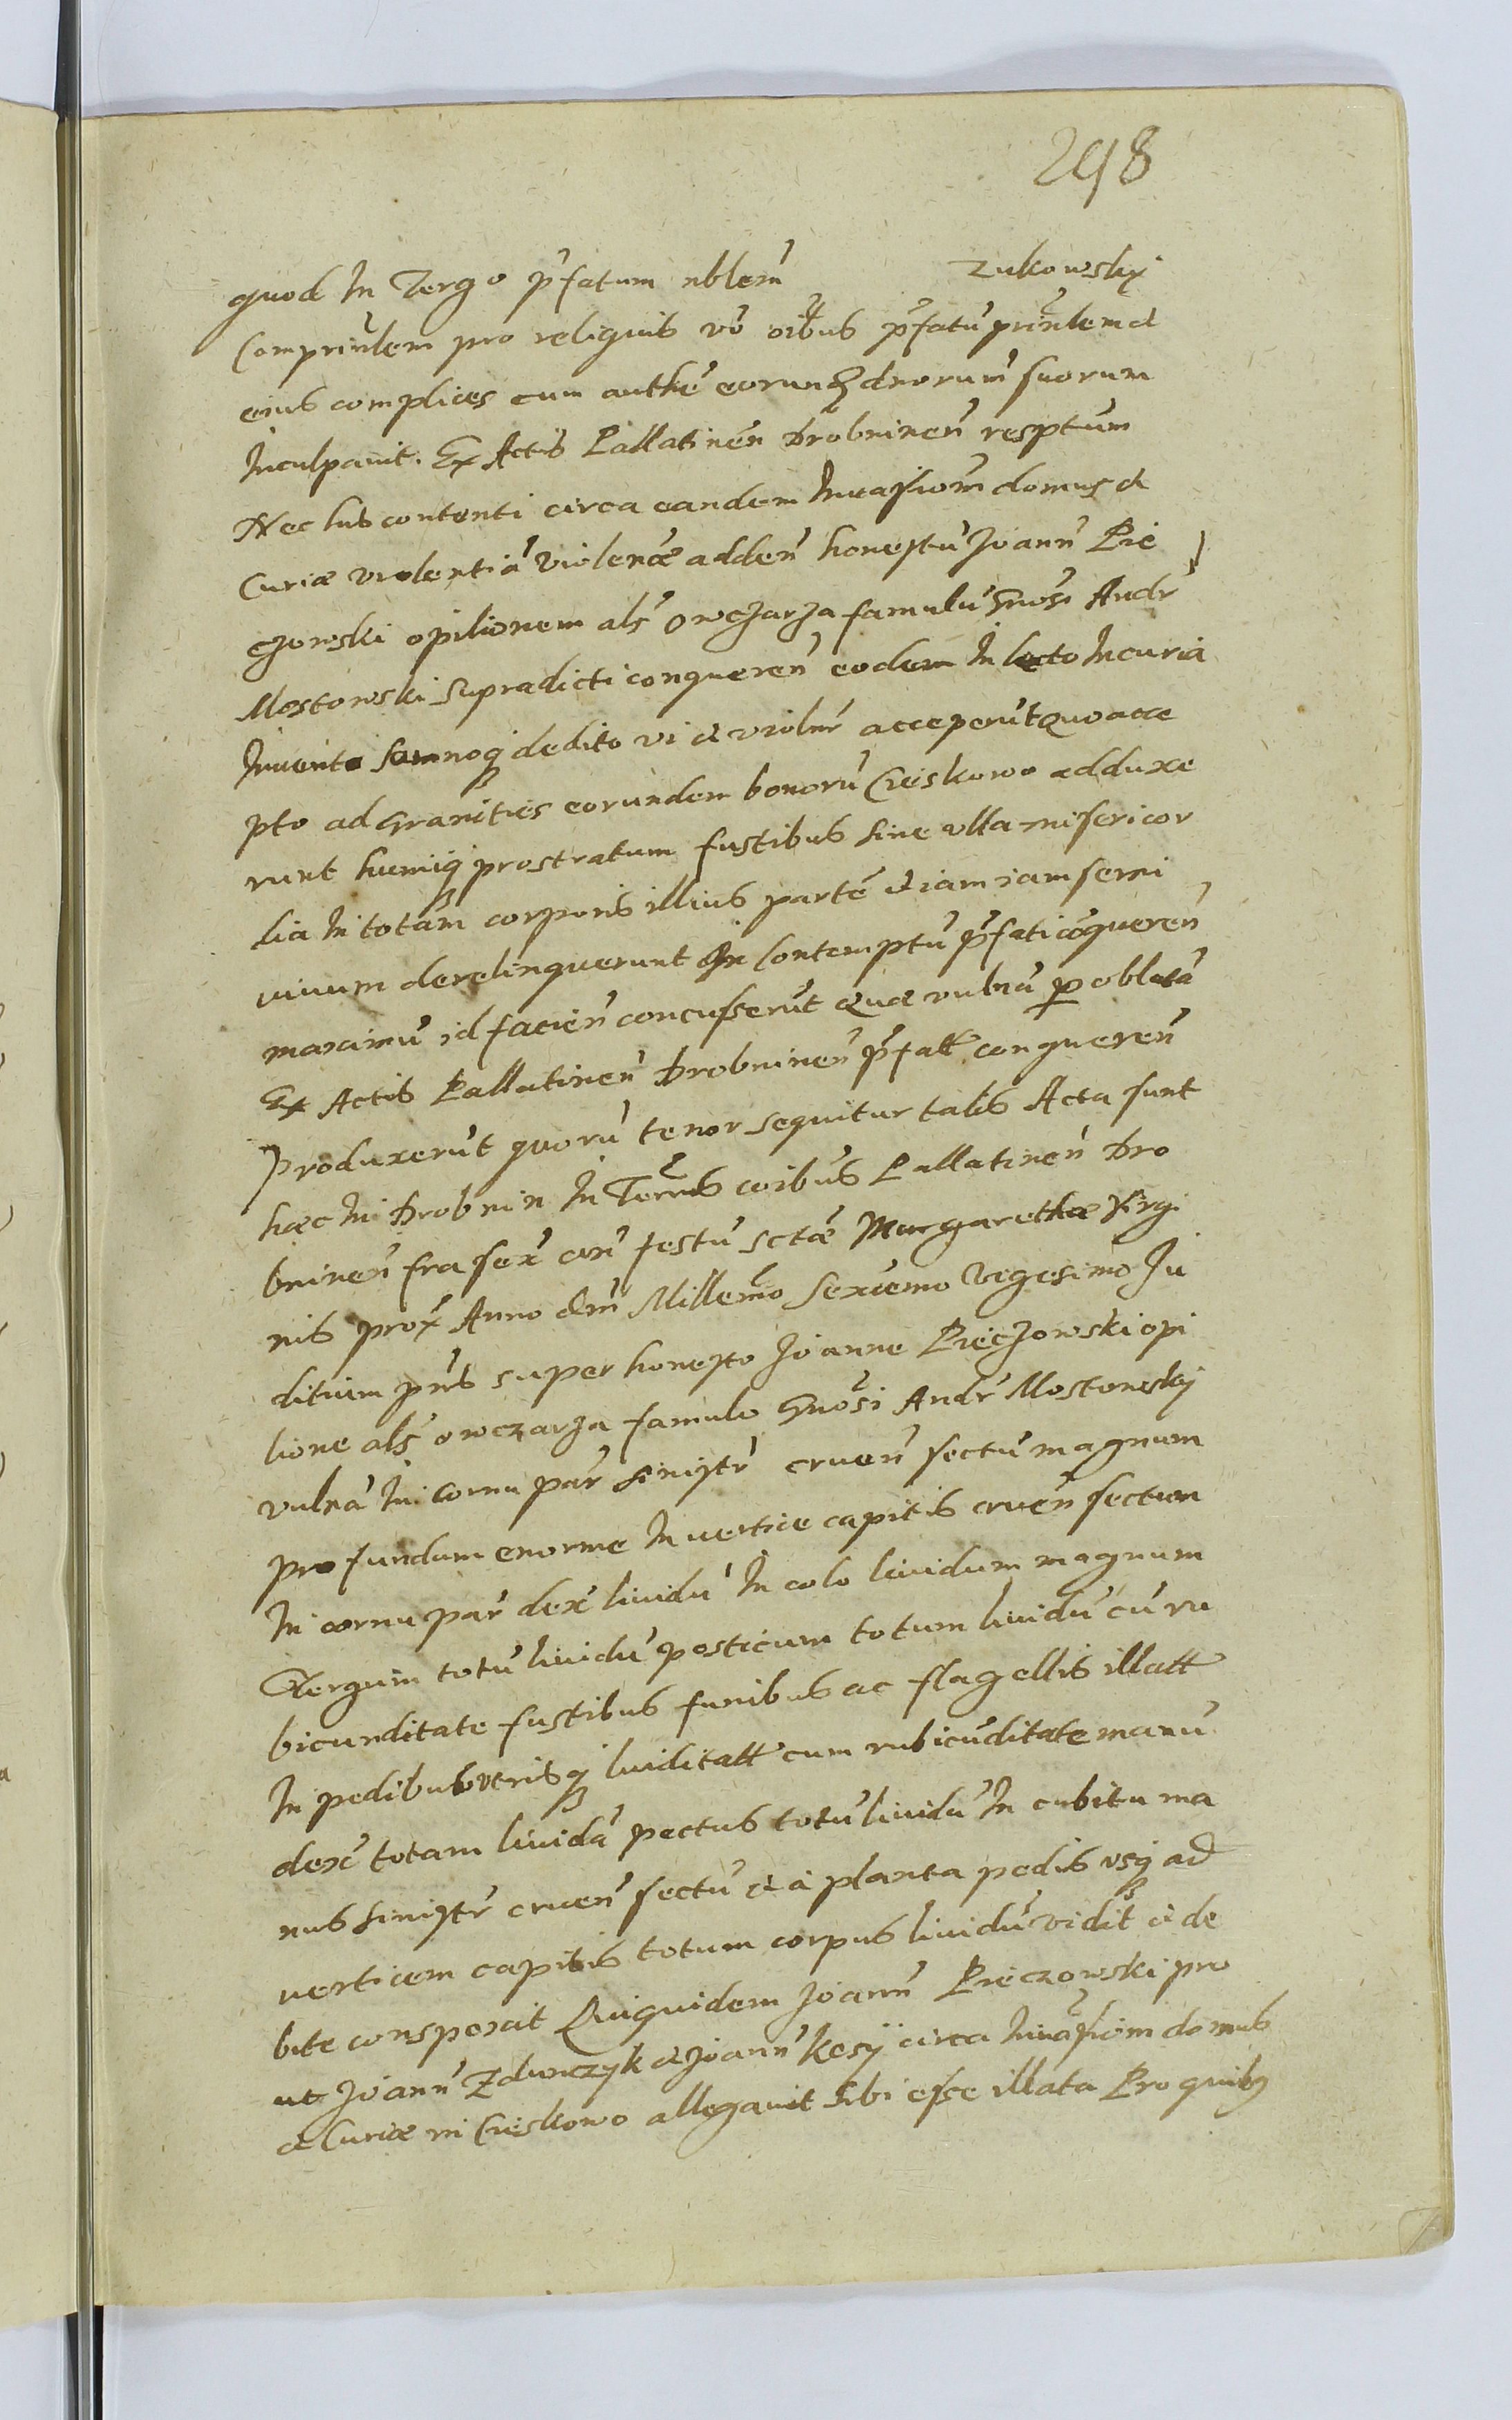 298
quod In Tergo p̃fatum nblem̃ Zukowsky
Comprinc̃lem pro reliquis vo᷃ oibus p̃fatũ princ̃lem et
eius complices cum authẽ eorund dnorum̃ suorum
Inculpauit. Ex Actis Pallatineñ Drobnineñ resptum
Nec his contenti circa eandem Inuasiom̃ domus et
Curiæ violentiã violenc̃æ addeñ honestũ Joanñ Pie
czowski opilionem als̃ Owczarza famulũ Gnosi Andr̃
Mostowski supradicti conquereñ eodem In lecto In curia
Inuento somnoq dedito vi et violnr̃ acceperũt quo acce
pto ad Granities eorundem bonorũ Cieskowo adduxe
runt humiq prostratum fustibus sine ulla misericor
dia In totam corporis illius partẽ et iam iam semi
viuum derelinquerunt In Contemptũ p̃fati cõquereñ
maximũ id facieñ concusserũt quæ vulnã p oblatã
Ex Actis Pallatineñ Drobnineñ p̃fatt conquereñ
Produxerũt quorũ tenor sequitur talis Acta sunt
hæc In Drobnin In Terr̃is coibus Pallatineñ Dro
bnineñ fra sex̃ añ festũ sctæ Margarethæ Virgi
nis prox̃ Anno dni̅ Millem̃o Sexcemo Vigesimo Ju
ditium pñs super honesto Joanne Pieczowski opi
lione als̃ owczarza famulo Gnosi Andr̃ Mostowsky
vulnã In cornu par̃ sinistr̃ crueñ sectũ magnum
profundum enorme In vertice capitis crueñ sectum
In cornu par̃ dex̃ liuidũ In colo liuidum magnum
Tergum totũ liuidũ posticum totum liuidũ cũ ru
bicunditate fustibus funibus ac flagellis illatt
In pedibus vtrisq liuiditatt cum rubicũditate manũ
dex̃ totam liuidã pectus totũ liuidũ In cubitu ma
nus sinistr̃ crueñ sectũ et à planta pedis vsq ad
verticem capitis totum corpus liuidũ vidit et de
bite conspexit Quiquidem Joanñ Pieczowski pro
ut Joanñ Zdunczyk et Joanñ Kosÿ circa Inuasiom̃ domus
et Curiæ in Cieskowo allegauit sibi esse illata Pro quibz